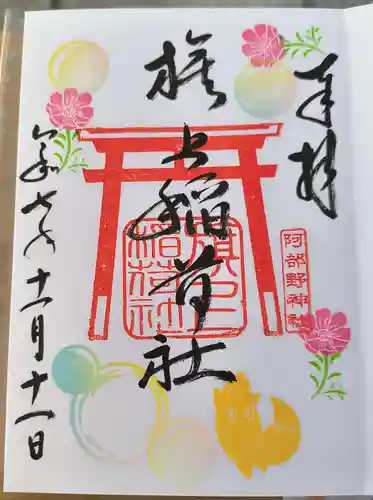 奉拝
旗上稲荷社
旗上
稲荷社
阿部野神社
令和七年十一月十一日